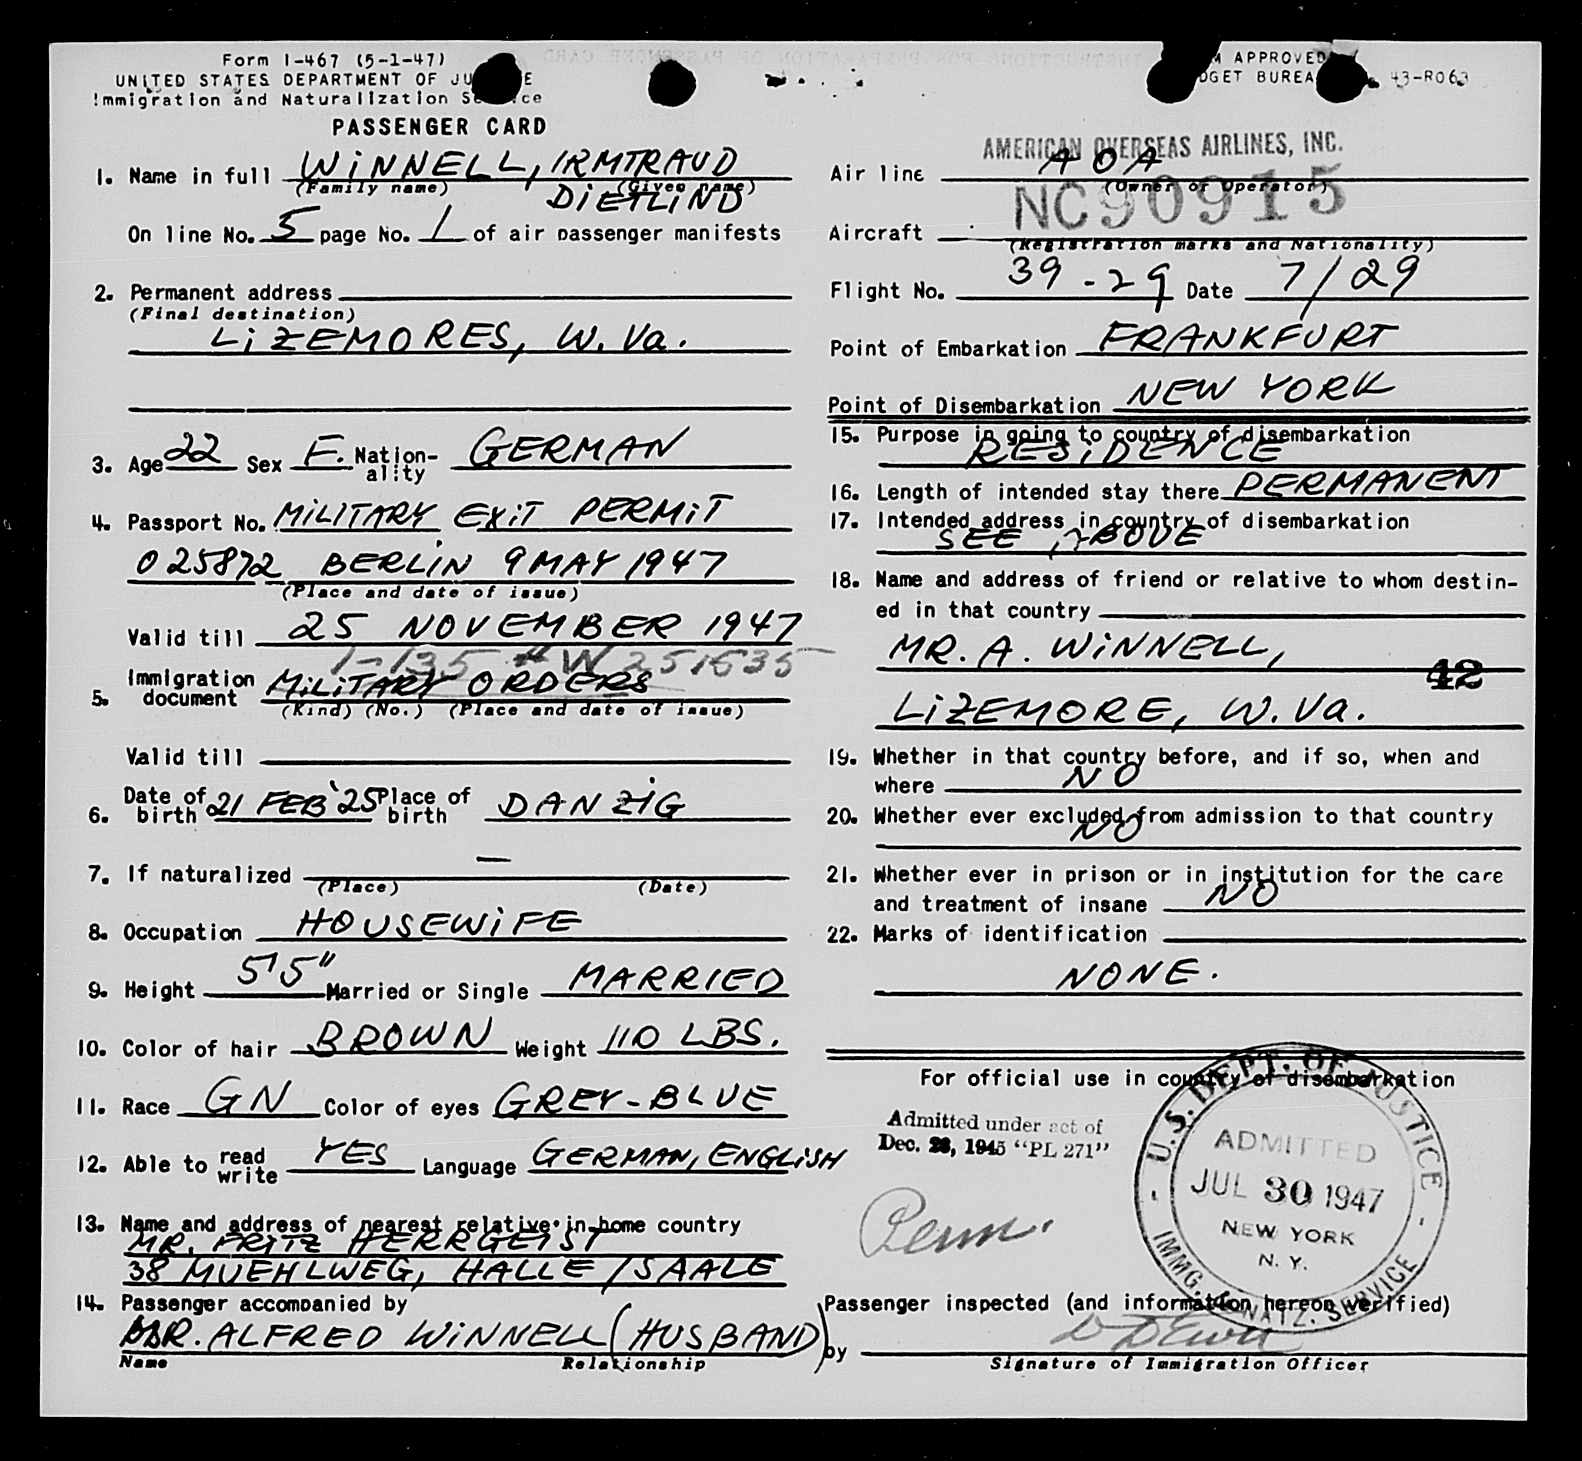 Form I-467 (5-1-47)
UNITED STATES DEPARTMENT OF JU E
Immigration and Naturalization Se ce
PASSENGER CARD
1. Name in full WINNELL, IRMTRAUD
(Family name) (Given name)
DIETLIND
On line No. 5 page No. 1 of air passenger manifests
2. Permanent address
(Final destination)
LIZEMORES, W. Va.
3. Age 22 Sex F. Nation-ality GERMAN
4. Passport No. MILITARY EXIT PERMIT
025872 BERLIN 9 MAY 1947
(Place and date of issue)
Valid till 25 NOVEMBER 1947
1-135 # W 251535
5. Immigration document MILITARY ORDERS
(Kind) (No.) (Place and date of issue)
Valid till
6. Date of birth 21 FEB '25 Place of birth DANZIG
7. If naturalized —
(Place) (Date)
8. Occupation HOUSEWIFE
9. Height 5'5" Married or Single MARRIED
10. Color of hair BROWN Weight 110 LBS.
11. Race GN Color of eyes GREY-BLUE
12. Able to read write YES Language GERMAN, ENGLISH
13. Name and address of nearest relative in home country
MR. FRITZ HERRGEIST
38 MUEHLWEG, HALLE/SAALE
14. Passenger accompanied by
MR. ALFRED WINNELL (HUSBAND)
Name Relationship
APPROVED
DGET BUREA 43-R063
AMERICAN OVERSEAS AIRLINES, INC.
Air line AOA
(Owner or Operator)
NC90915
Aircraft
(Registration marks and Nationality)
Flight No. 39-29 Date 7/29
Point of Embarkation FRANKFURT
Point of Disembarkation NEW YORK
15. Purpose in going to country of disembarkation
RESIDENCE
16. Length of intended stay there PERMANENT
17. Intended address in country of disembarkation
SEE ABOVE
18. Name and address of friend or relative to whom destin-
ed in that country
MR. A. WINNELL,
42
LIZEMORE, W. Va.
19. Whether in that country before, and if so, when and
where NO
20. Whether ever excluded from admission to that country
NO
21. Whether ever in prison or in institution for the care
and treatment of insane NO
22. Marks of identification
NONE.
For official use in country of disembarkation
Admitted under act of
Dec. 28, 1945 "PL 271"
Perm.
U.S. DEPT. OF JUSTICE
ADMITTED
JUL 30 1947
NEW YORK
N. Y.
IMMG. & NATZ. SERVICE
Passenger inspected (and information hereon verified)
by
Signature of Immigration Officer